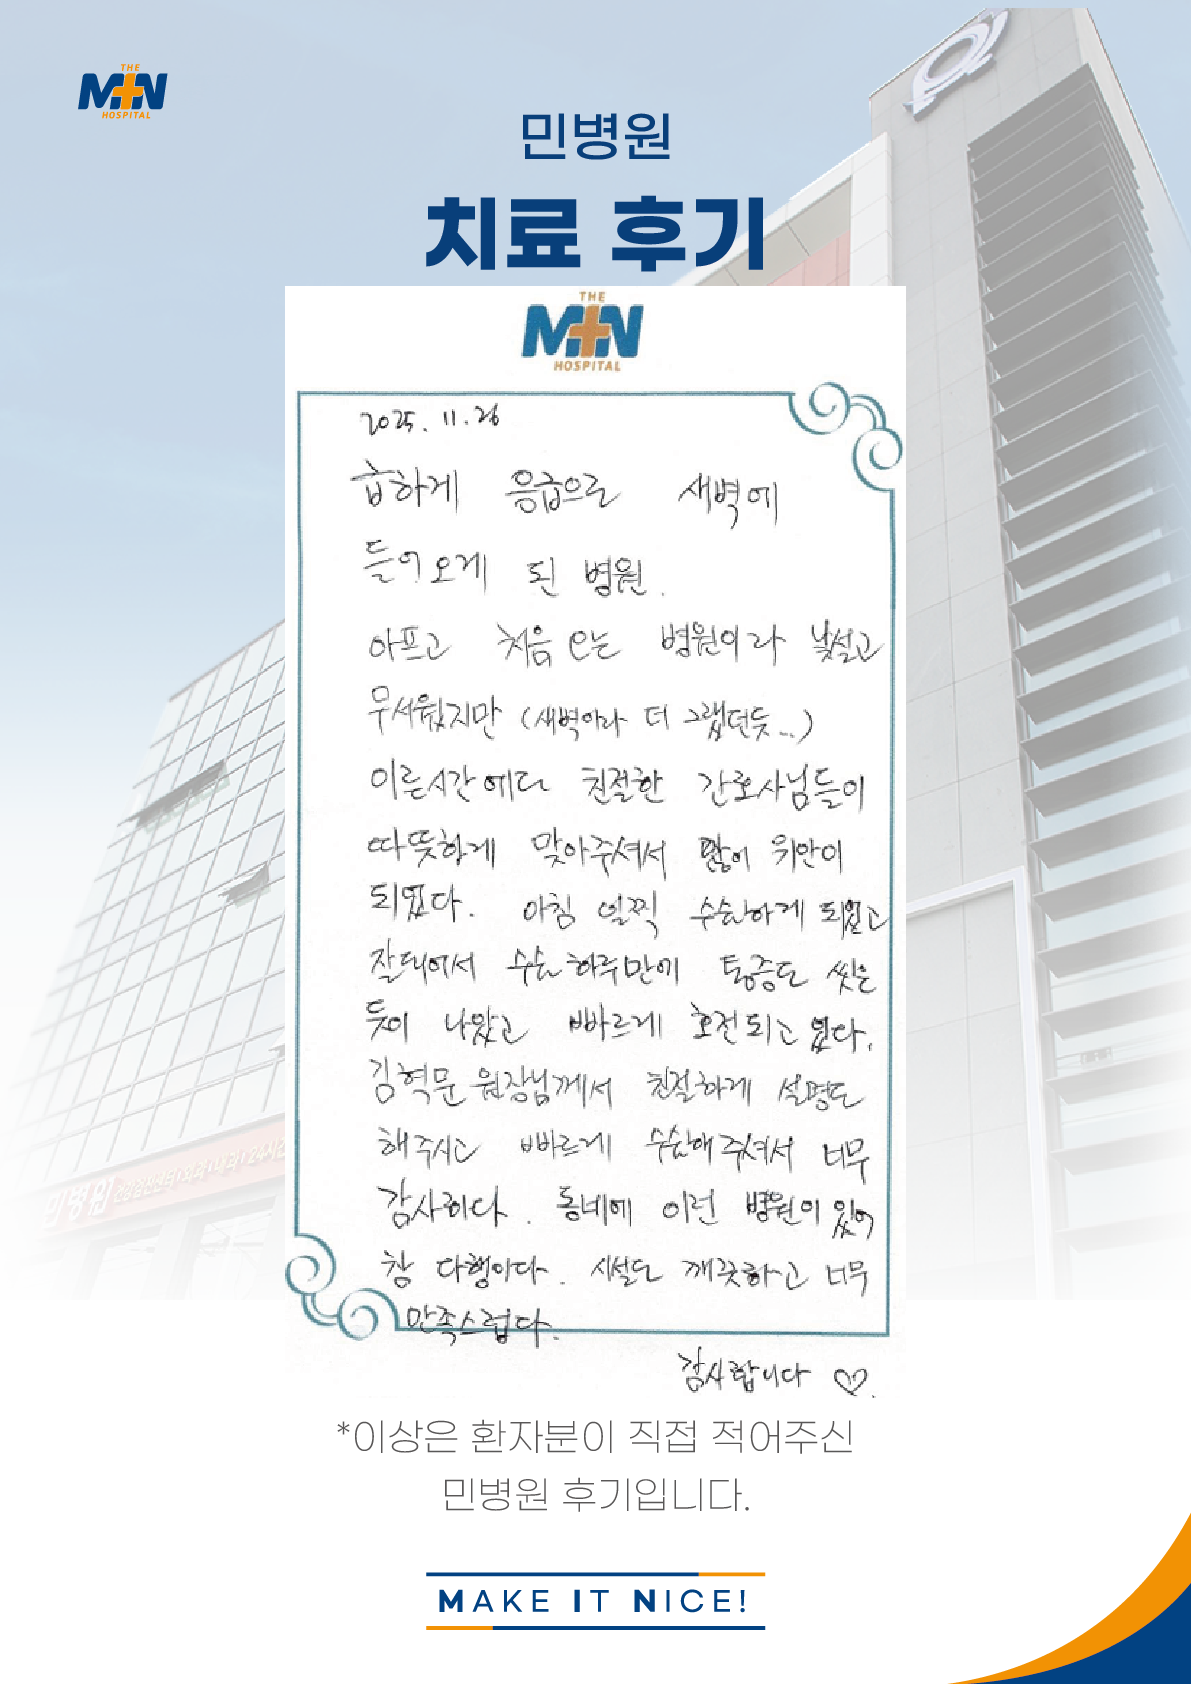 THE
MIN
HOSPITAL
민병원
치료 후기
THE
MIN
HOSPITAL
2025. 11. 26
급하게 응급으로 새벽에
들어오게 된 병원.
아프고 처음 오는 병원이라 낯설고
무서웠지만 (새벽이라 더 그랬던듯...)
이른시간에도 친절한 간호사님들이
따뜻하게 맞아주셔서 많이 위안이
되었다. 아침 일찍 수술하게 되었고
잘되어서 수술 하루만에 통증도 씻은
듯이 나았고 빠르게 호전되고 있다.
김혁문 원장님께서 친절하게 설명도
해주시고 빠르게 수술해주셔서 너무
감사하다. 동네에 이런 병원이 있어
참 다행이다. 시설도 깨끗하고 너무
만족스럽다.
감사합니다 ♡.
*이상은 환자분이 직접 적어주신
민병원 후기입니다.
MAKE IT NICE!
민병원